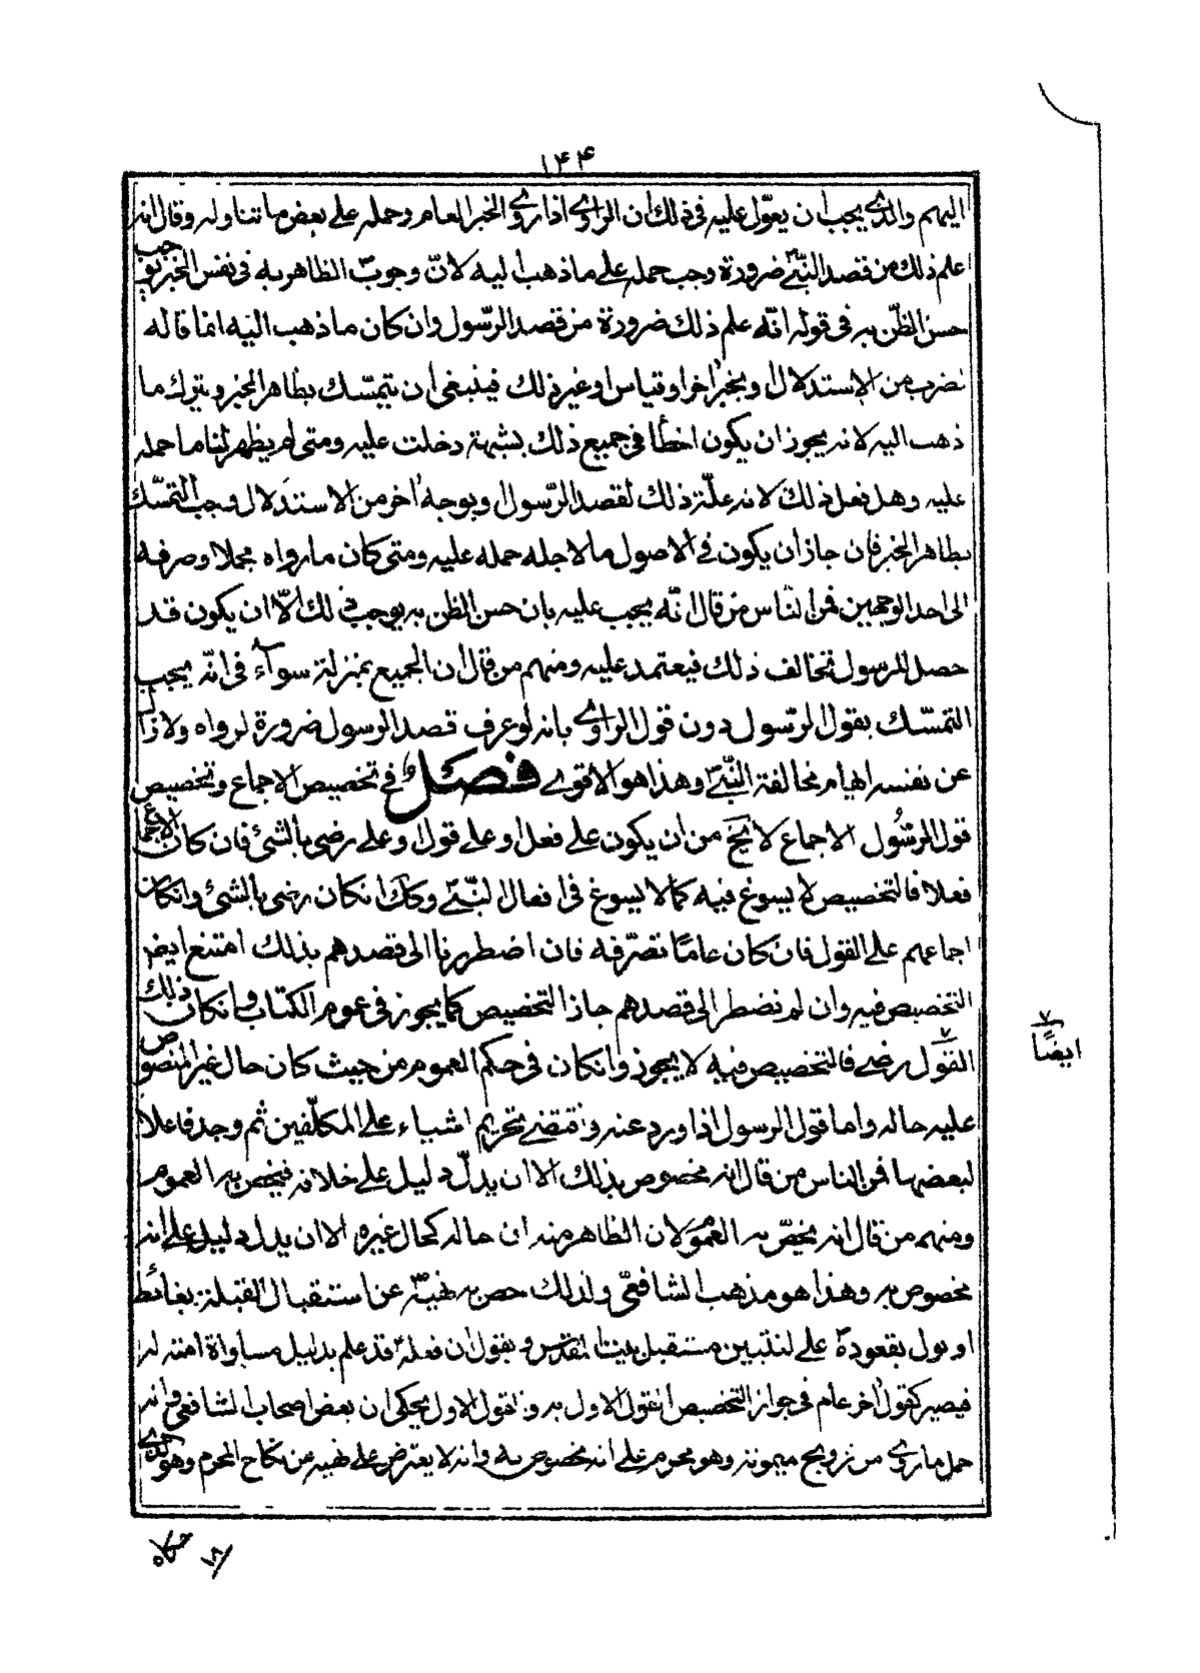 ١٤٤
اليهم والذى يجب ان يعوّل عليه فى ذلك ان الراوى اذا روى الخبر العام وحمله على بعض ما تناوله وقال انه
علم ذلك من قصد النبىّ ضرورة وجب حمله على ما ذهب اليه لانّ وجوب الظاهر به فى نفس الخبر يوجب
حسن الظّن به فى قوله انّه علم ذلك ضرورة من قصد الرّسول وان كان ما ذهب اليه انما قاله
لضرب من الاستدلال و بخبر اخر او قياس او غير ذلك فينبغى ان يتمسّك بظاهر الخبر ويترك ما
ذهب اليه لانه يجوز ان يكون اخطأ فى جميع ذلك بشبهة دخلت عليه ومتى لم يظهر لنا ما حمله
عليه وهل فعل ذلك لانه علّة ذلك لقصد الرّسول و بوجه اخر من الاستدلال وجب التمسّك
بظاهر الخبر فإن جاز ان يكون فى الاصول ما لاجله حمله عليه ومتى كان ما رواه مجملا وصرفه
الى احد الوجهين فمن الناس من قال انّه يجب عليه بان حسن الظن به يوجب ذلك الّا ان يكون قد
حصل للرسول تخالف ذلك فيعتمد عليه ومنهم من قال ان الجميع بمنزلة سواء فى انّه يجب
التمسّك بقول الرّسول دون قول الراوى بانه لو عرف قصد الرسول ضرورة لرواه ولازال
عن نفسه ايهام مخالفة النبّى وهذا هو الاقوى فصل فى تخصيص الاجماع وتخصيص
قول الرسُول الاجماع لا يخ من ان يكون على فعل او على قول او على رضى بالشئ فان كان الاجماع
فعلا فالتخصيص لا يسوغ فيه كما لا يسوغ فى افعال النبّى وكك انكان رضى بالشئ وانكان
اجماعهم على القول فان كان عامّا نصرّفه فان اضطررنا الى قصدهم بذلك امتنع ايض
التخصيص فيه وان لم نضطر الى قصدهم جاز التخصيص كما يجوز فى عموم الكتاب وانكان ذلك
القول رضى فالتخصيص فيه لا يجوز وانكان فى حكم العموم من حيث كان حال غير المنصوص
عليه حاله واما قول الرسول اذا ورد عنه واقتضى تحريم اشياء على المكلّفين ثم وجد فاعلا
لبعضها فمن الناس من قال انه مخصوص بذلك الا ان يدلّ دليل على خلافه فيخص به العموم
ومنهم من قال انه يخصّ به العموم لان الظاهر منه ان حاله كحال غيره الا ان يدل دليل على انه
مخصوص به وهذا هو مذهب الشافعى ولذلك خص به نهيه عن استقبال القبلة بغائط
او بول بقعوده على لبنتين مستقبل بيت المقدس و يقول ان فعله قد علم بدليل مساواة امته له
فيصير كقول اخر عام فى جواز التخصيص القول الاول به وذ القول الاول يحكى ان بعض اصحاب الشافعى وانه
حمل ما روى من تزويج ميمونه وهو محرم على انه مخصوص به وانه لا يعترض على نهيه عن نكاح المحرم وهو الذى
ايضًا
حكاه